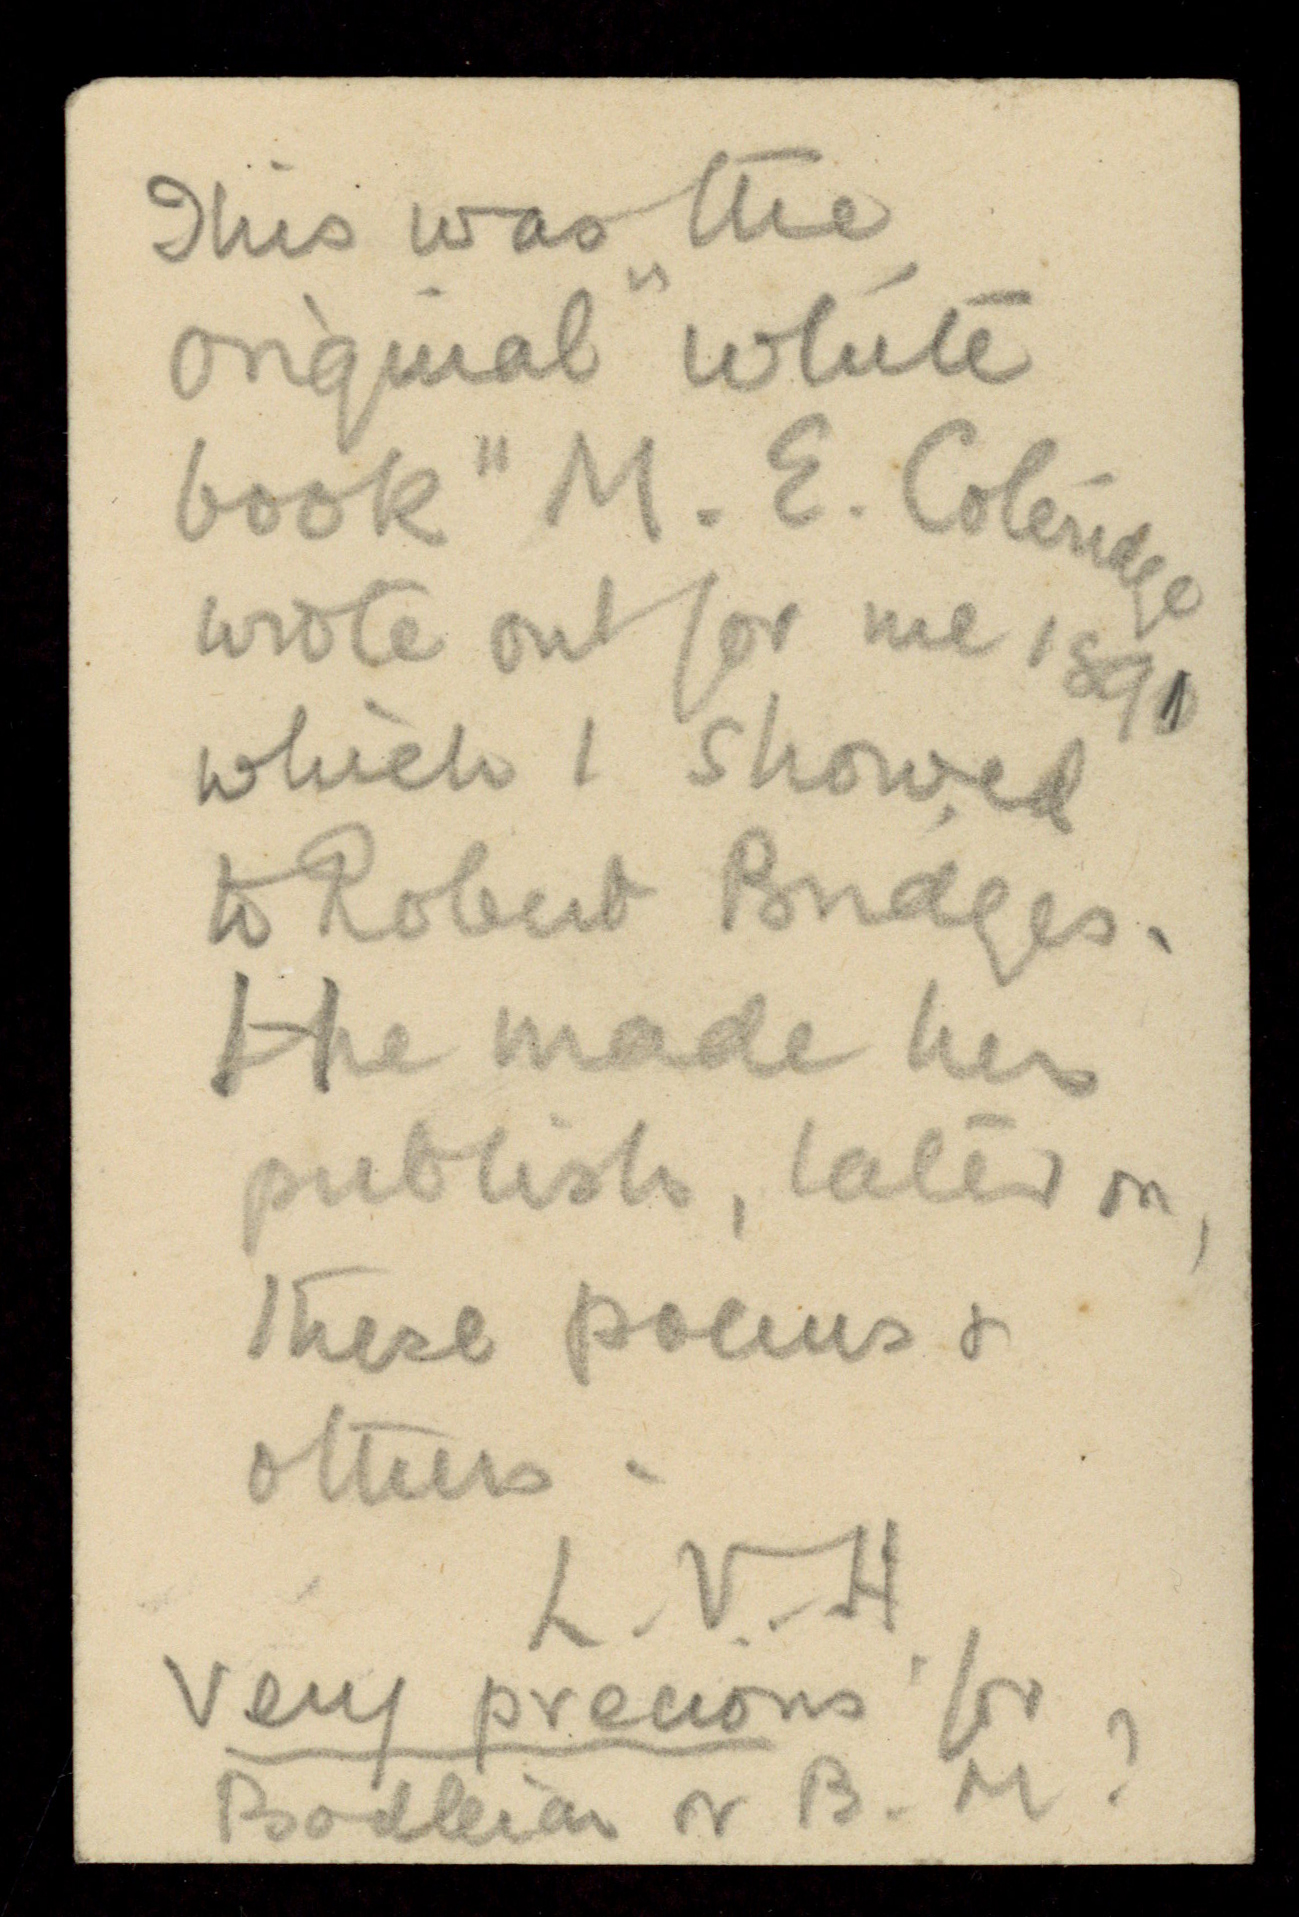 This was the
original "white
book" M. E. Coleridge
wrote out for me 1891
which I showed
to Robert Bridges.
He made her
publish, later on,
these poems &
others.
L. V. H
Very precious for
Bodleian or B. M?